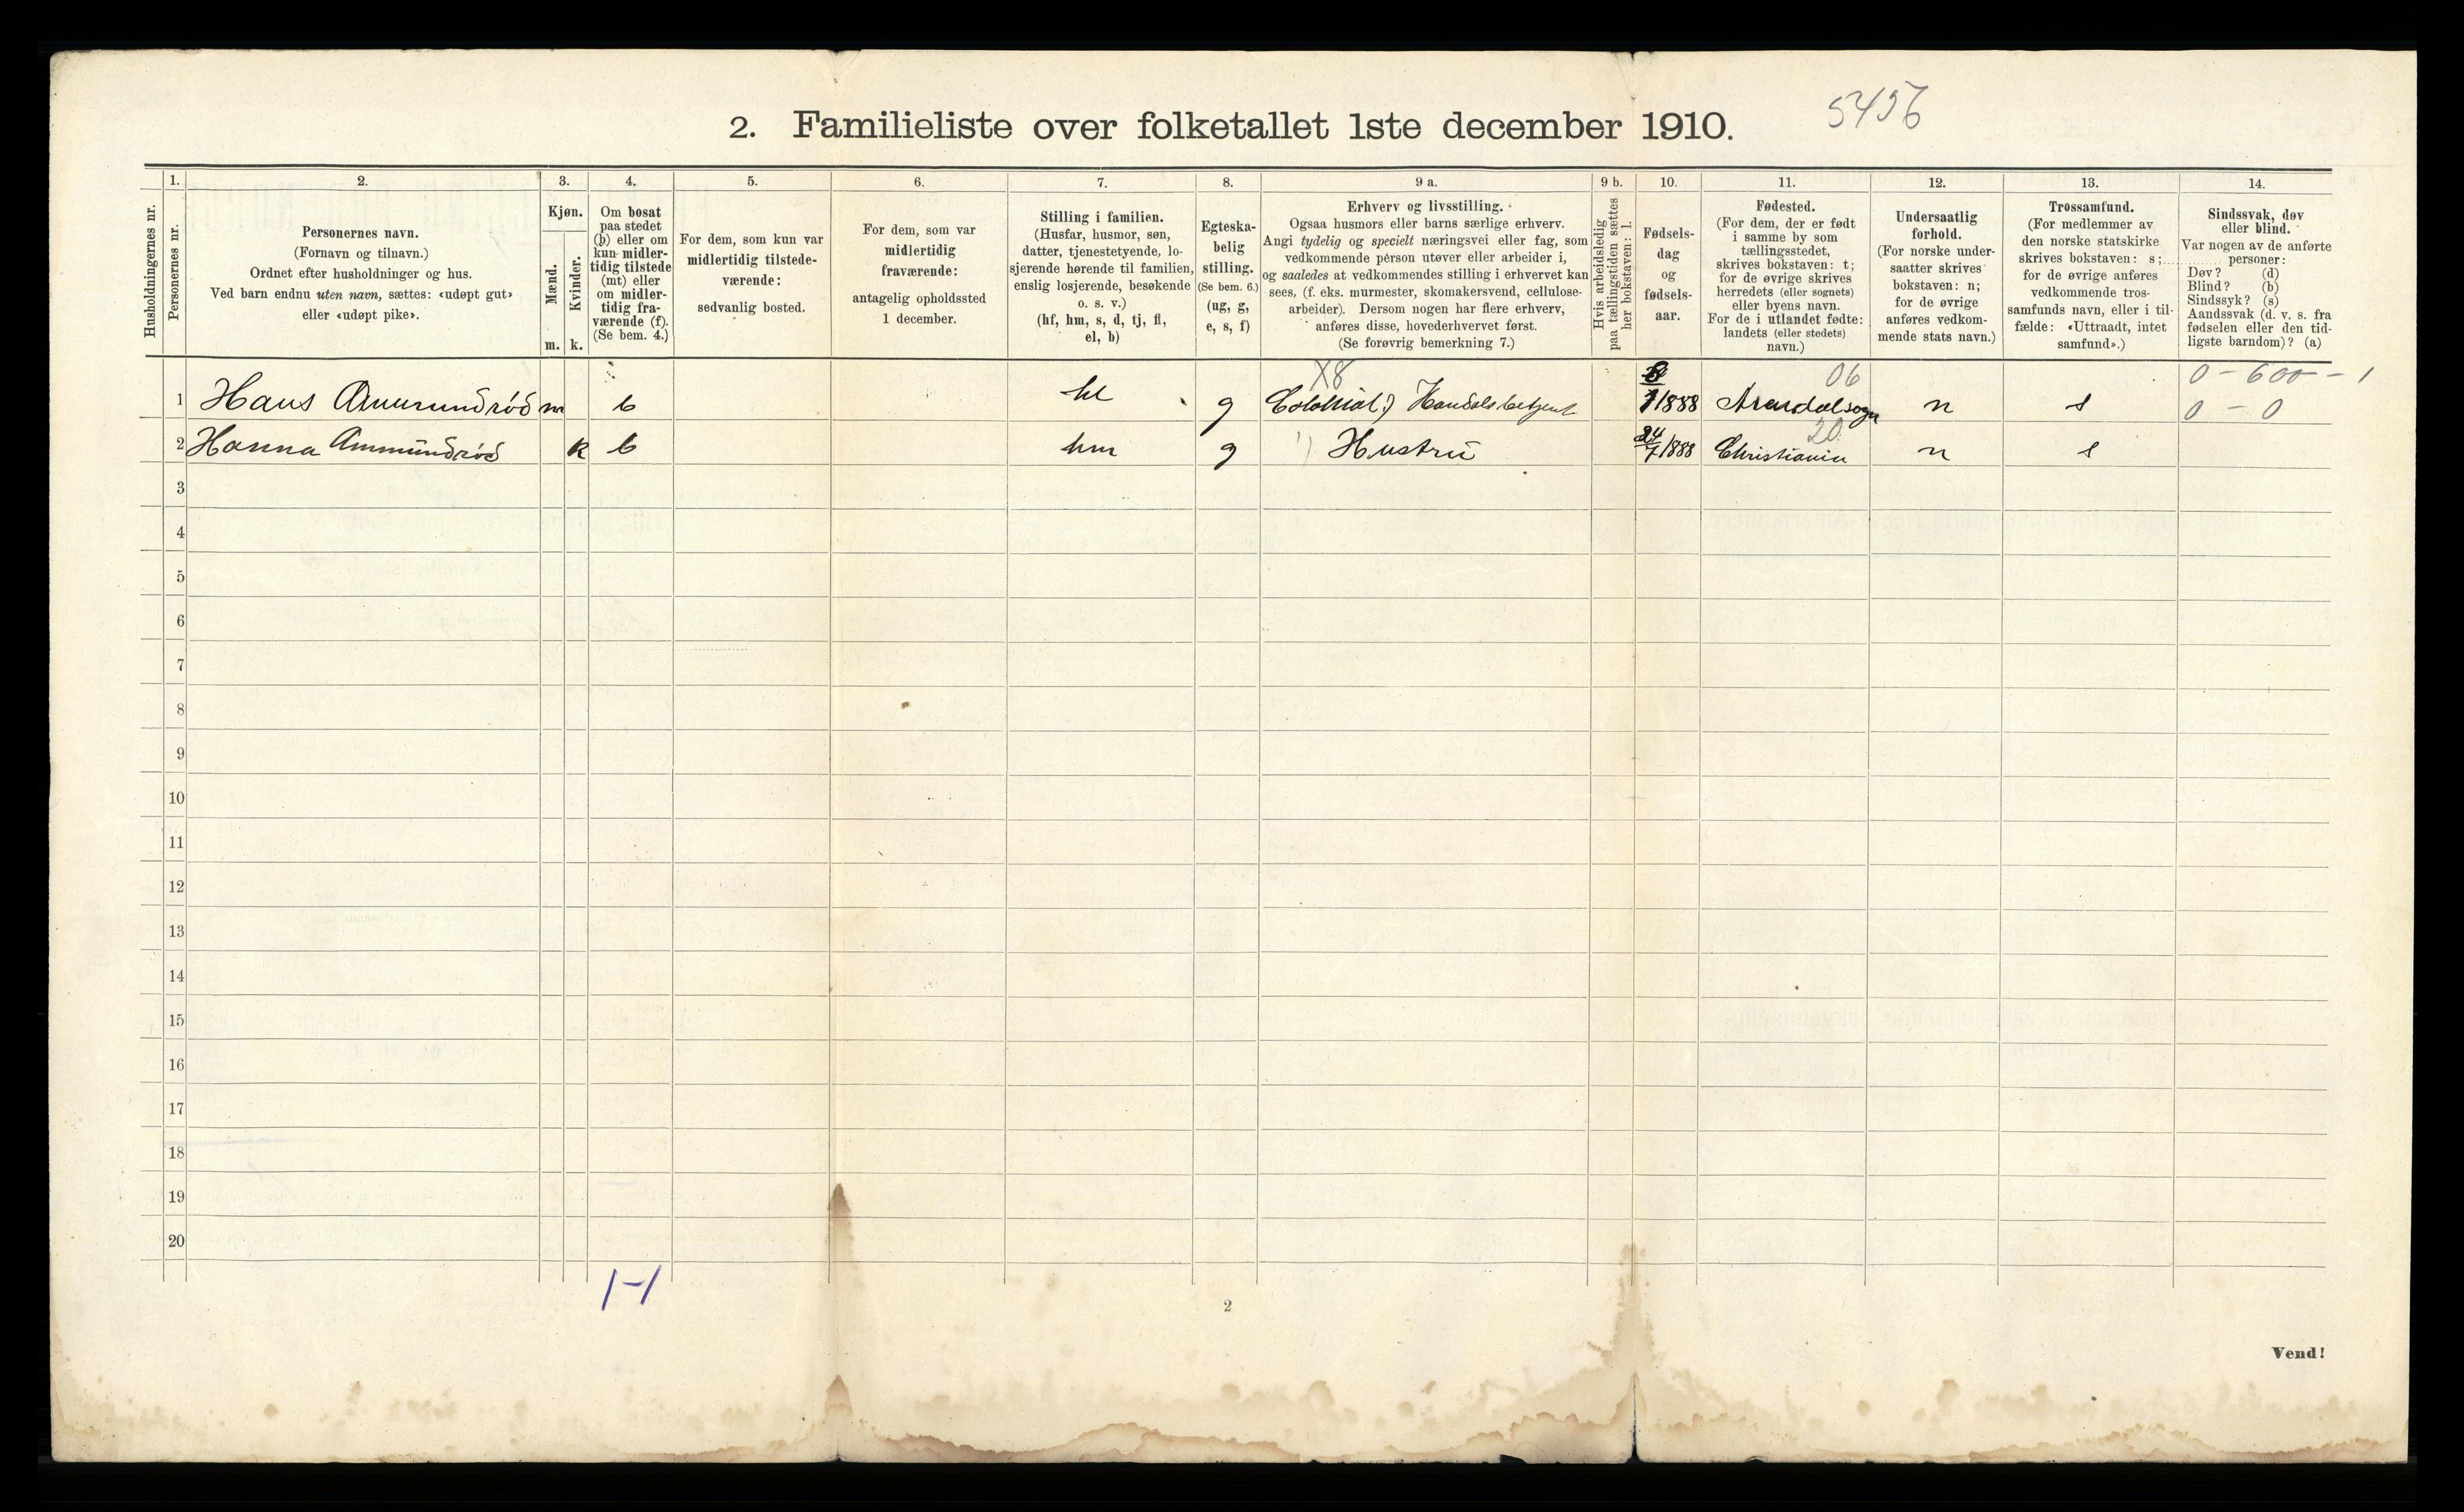 2. Familieliste over folketallet 1ste december 1910.
5456
Husholdningernes nr.
1.
Personernes nr.
2.
Personernes navn.
(Fornavn og tilnavn.)
Ordnet efter husholdninger og hus.
Ved barn endnu uten navn, sættes: «udøpt gut»
eller «udøpt pike».
3.
Kjøn.
Mænd.
m.
Kvinder.
k.
4.
Om bosat
paa stedet
(b) eller om
kun midler-
tidig tilstede
(mt) eller
om midler-
tidig fra-
værende (f).
(Se bem. 4.)
5.
For dem, som kun var
midlertidig tilstede-
værende:
sedvanlig bosted.
6.
For dem, som var
midlertidig
fraværende:
antagelig opholdssted
1 december.
7.
Stilling i familien.
(Husfar, husmor, søn,
datter, tjenestetyende, lo-
sjerende hørende til familien,
enslig losjerende, besøkende
o. s. v.)
(hf, hm, s, d, tj, fl,
el, b)
8.
Egteska-
belig
stilling.
(Se bem. 6.)
(ug, g,
e, s, f)
9 a.
Erhverv og livsstilling.
Ogsaa husmors eller barns særlige erhverv.
Angi tydelig og specielt næringsvei eller fag, som
vedkommende person utøver eller arbeider i,
og saaledes at vedkommendes stilling i erhvervet kan
sees, (f. eks. murmester, skomakersvend, cellulose-
arbeider). Dersom nogen har flere erhverv,
anføres disse, hovederhvervet først.
(Se forøvrig bemerkning 7.)
9 b.
Hvis arbeidsledig
paa tællingstiden sættes
her bokstaven: l.
10.
Fødsels-
dag
og
fødsels-
aar.
11.
Fødested.
(For dem, der er født
i samme by som
tællingsstedet,
skrives bokstaven: t;
for de øvrige skrives
herredets (eller sognets)
eller byens navn.
For de i utlandet fødte:
landets (eller stedets)
navn.)
12.
Undersaatlig
forhold.
(For norske under-
saatter skrives
bokstaven: n;
for de øvrige
anføres vedkom-
mende stats navn.)
13.
Trossamfund.
(For medlemmer av
den norske statskirke
skrives bokstaven: s;
for de øvrige anføres
vedkommende tros-
samfunds navn, eller i til-
fælde: «Uttraadt, intet
samfund».)
14.
Sindssvak, døv
eller blind.
Var nogen av de anførte
personer:
Døv? (d)
Blind? (b)
Sindssyk? (s)
Aandssvak (d. v. s. fra
fødselen eller den tid-
ligste barndom)? (a)
X8 06 0 - 600 - 1
1 Hans Ammundrød m b g Handelsbetjent 1888 Arendalsogn n s 0 - 0
20
2 Hanna Ammundrød k b hm g Hustru 24/7 1888 Christiania n s
3
4
5
6
7
8
9
10
11
12
13
14
15
16
17
18
19
20
1-1
2
Vend!